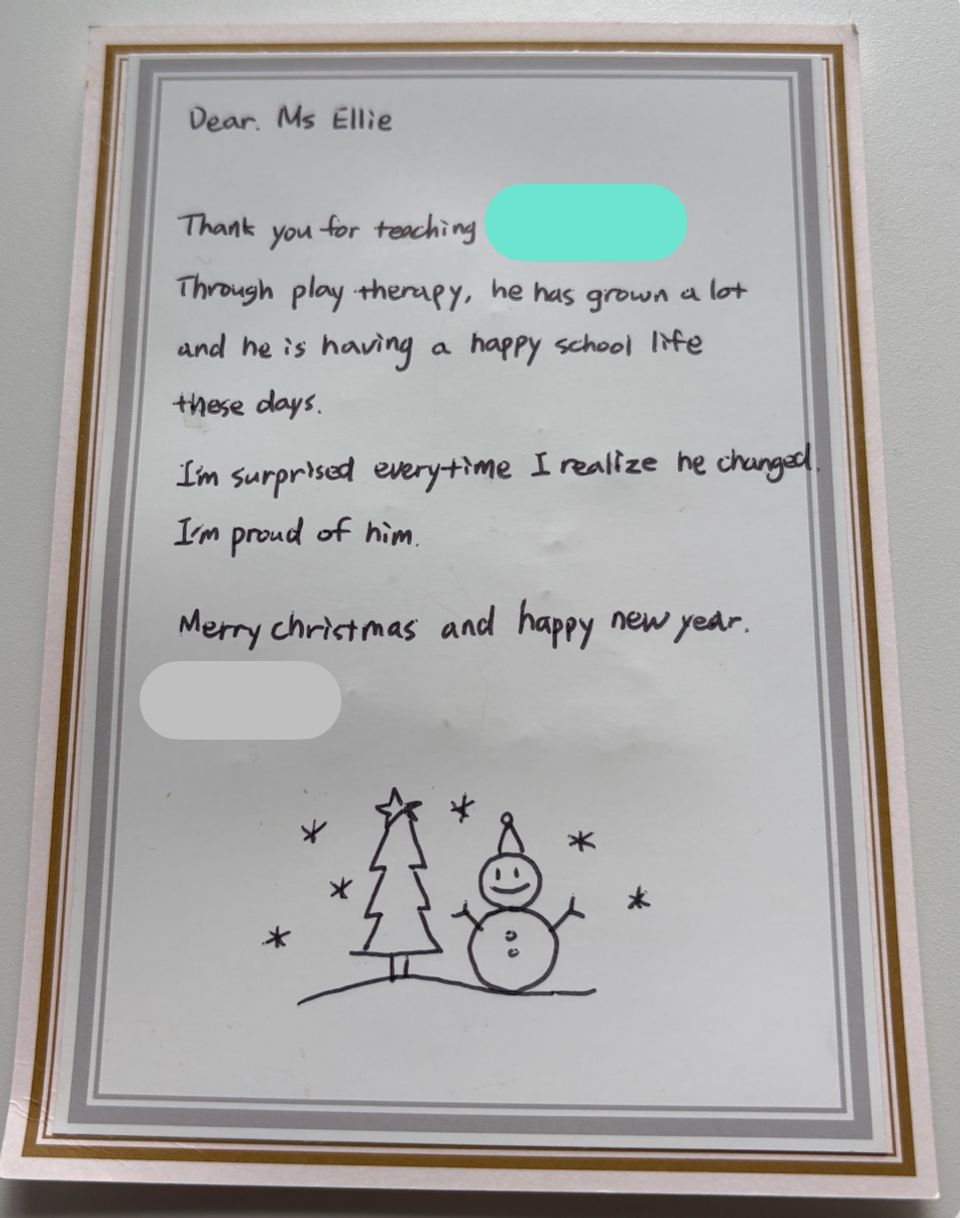 Dear. Ms Ellie
Thank you for teaching
Through play therapy, he has grown a lot
and he is having a happy school life
these days.
I'm surprised everytime I realize he changed.
I'm proud of him.
Merry christmas and happy new year.